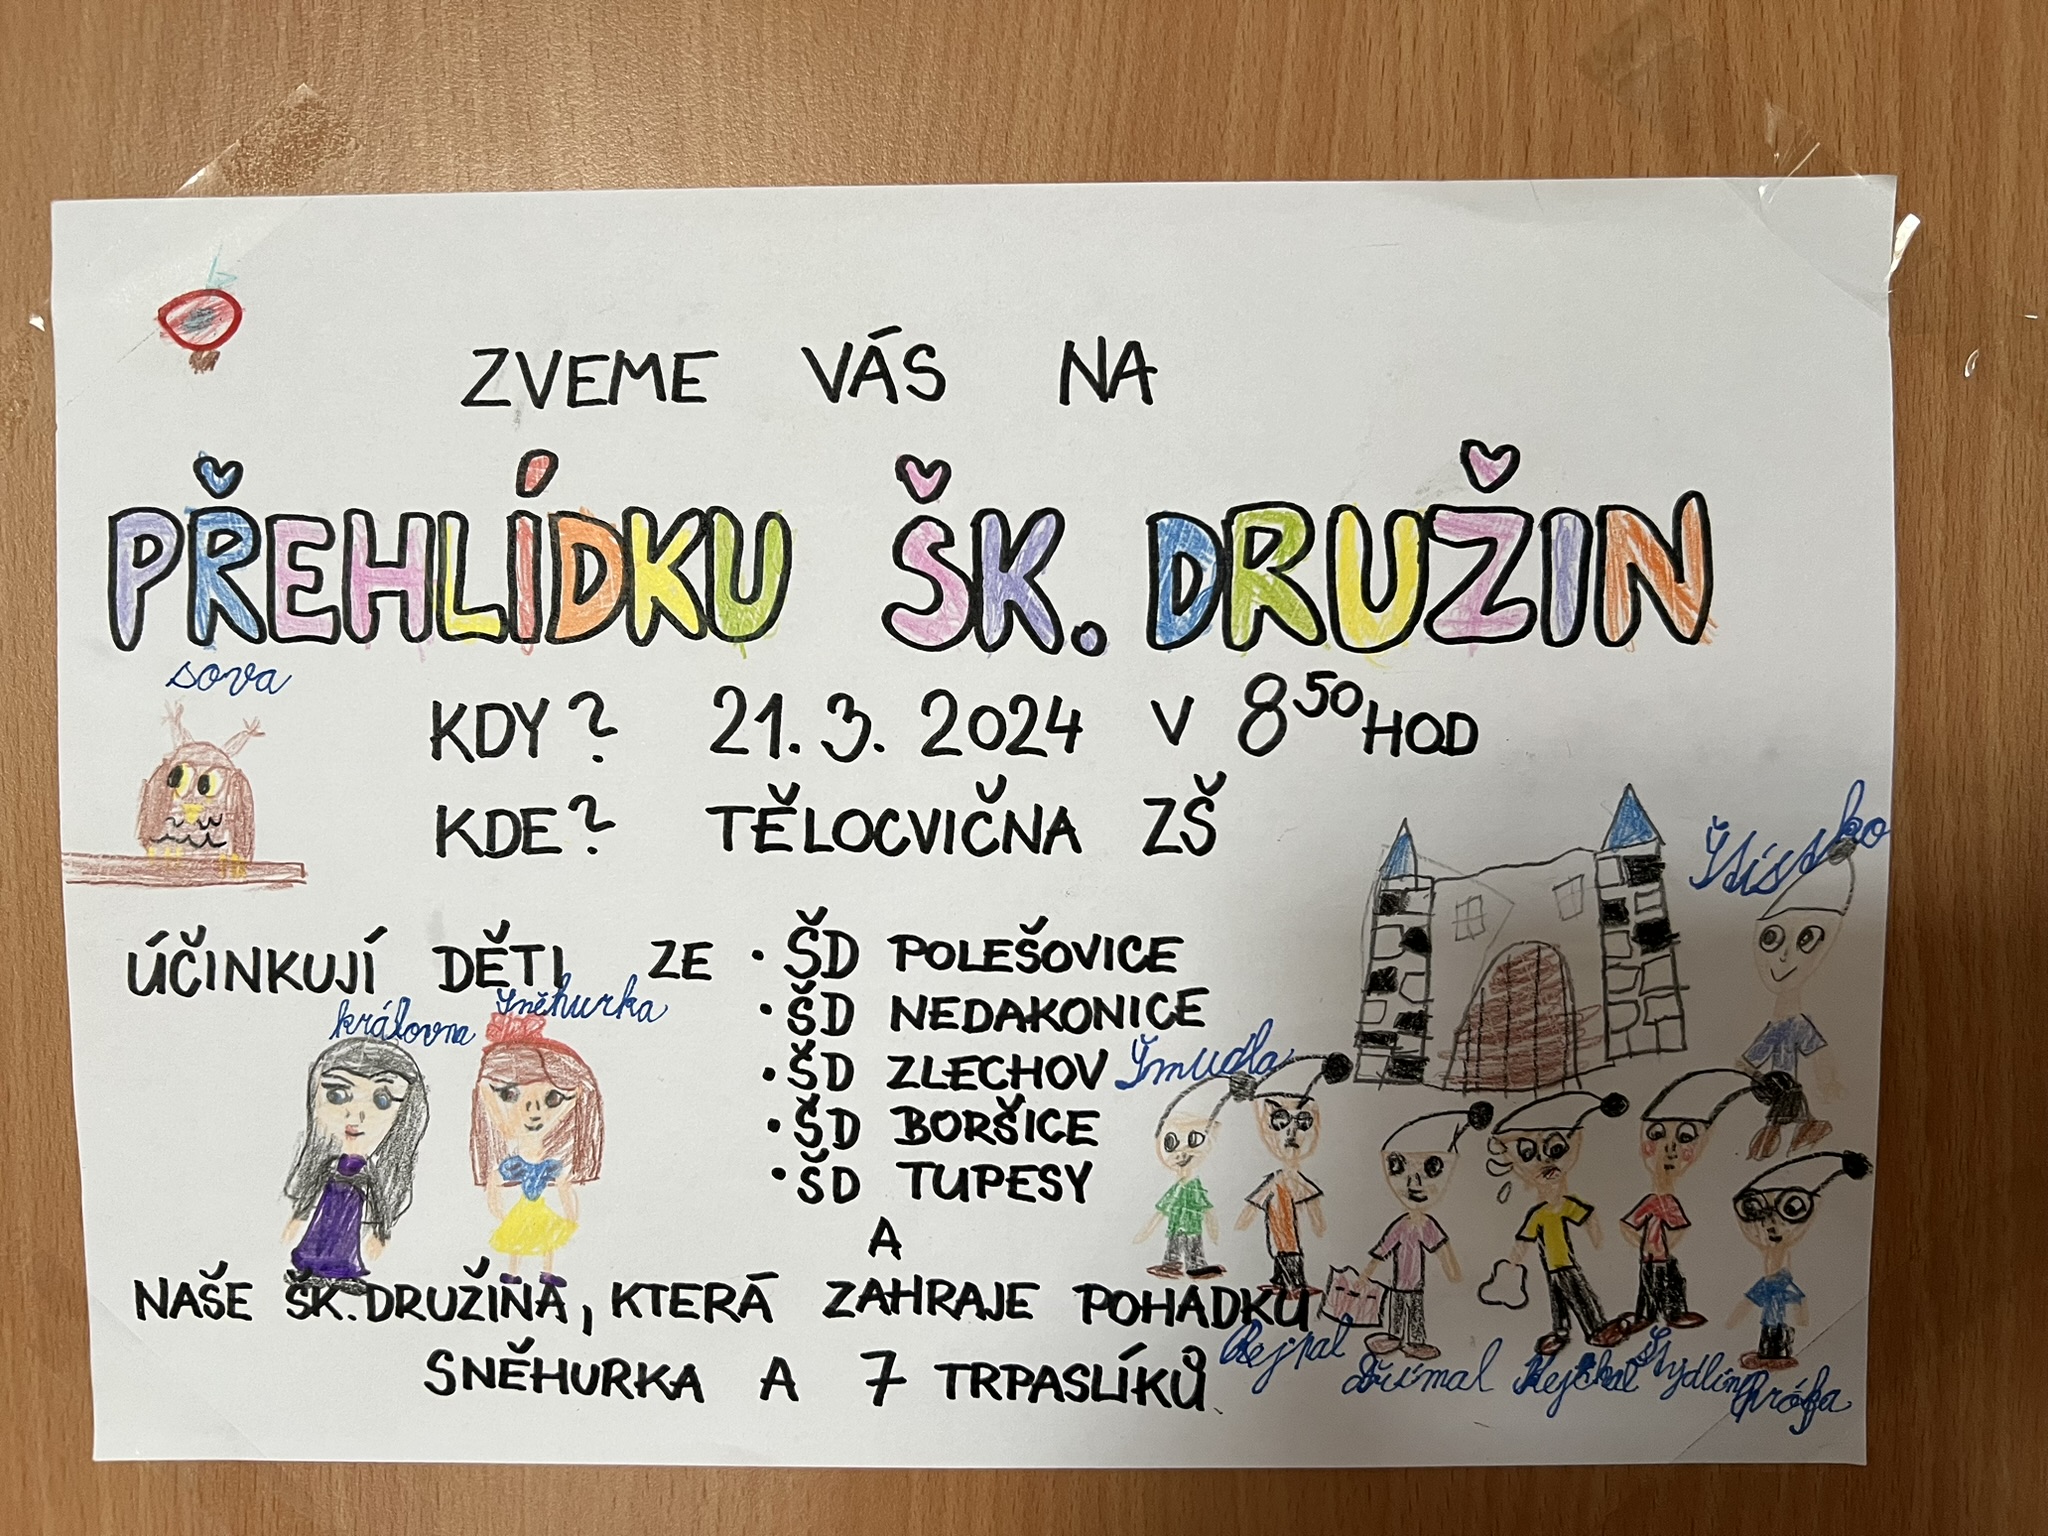 ZVEME VÁS NA
PŘEHLÍDKU ŠK. DRUŽIN
sova
KDY? 21. 3. 2024 V 8⁵⁰ HOD
KDE? TĚLOCVIČNA ZŠ
ÚČINKUJÍ DĚTI ZE • ŠD POLEŠOVICE
• ŠD NEDAKONICE
• ŠD ZLECHOV
• ŠD BORŠICE
• ŠD TUPESY
královna
Sněhurka
Šmudla
A
NAŠE ŠK. DRUŽINA, KTERÁ ZAHRAJE POHÁDKU
SNĚHURKA A 7 TRPASLÍKŮ
Rejpal
Dřímal
Kejchal
Stydlín
Prófa